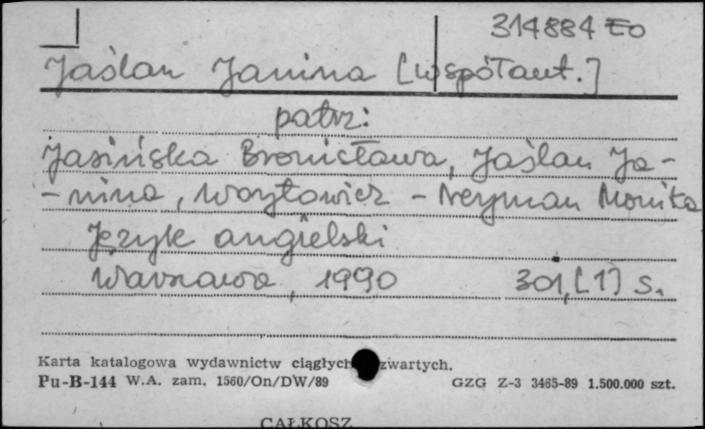 314884 Eo
Jaślan Janina [współaut.]
patrz:
Jasińska Bronisława, Jaślan Ja-
-nina, Woytowicz-Neyman Monika
Język angielski
Warszawa, 1990 301,[1] s.
Karta katalogowa wydawnictw ciągłych zwartych.
Pu-B-144 W.A. zam. 1560/On/DW/89 GZG Z-3 3465-89 1.500.000 szt.
CAŁKOSZ